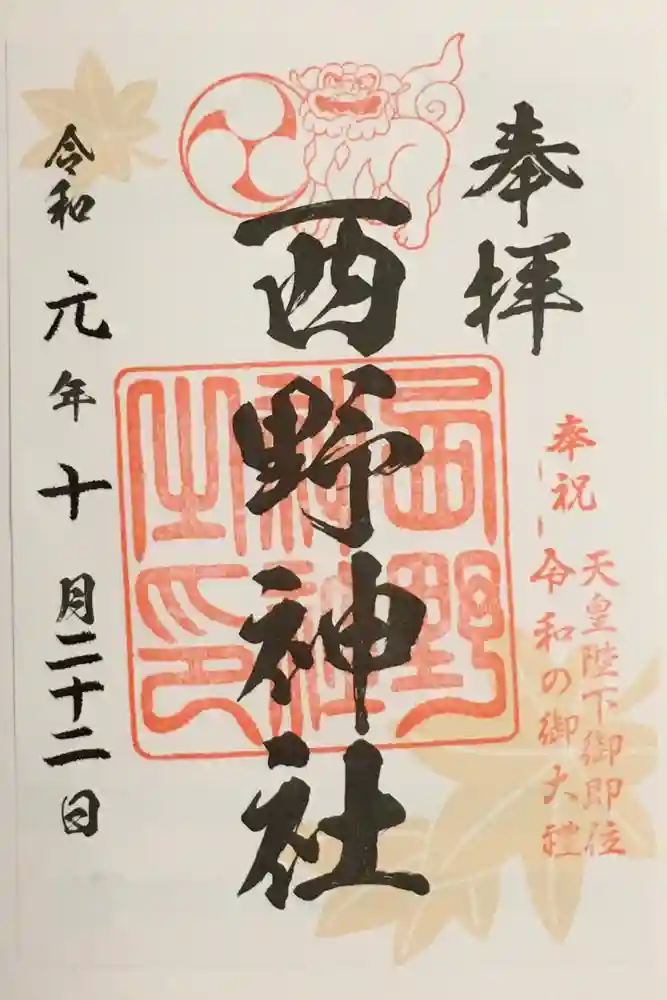 奉拝
奉祝
天皇陛下御即位
令和の御大禮
西野神社
西野神社之印
令和元年十月二十二日